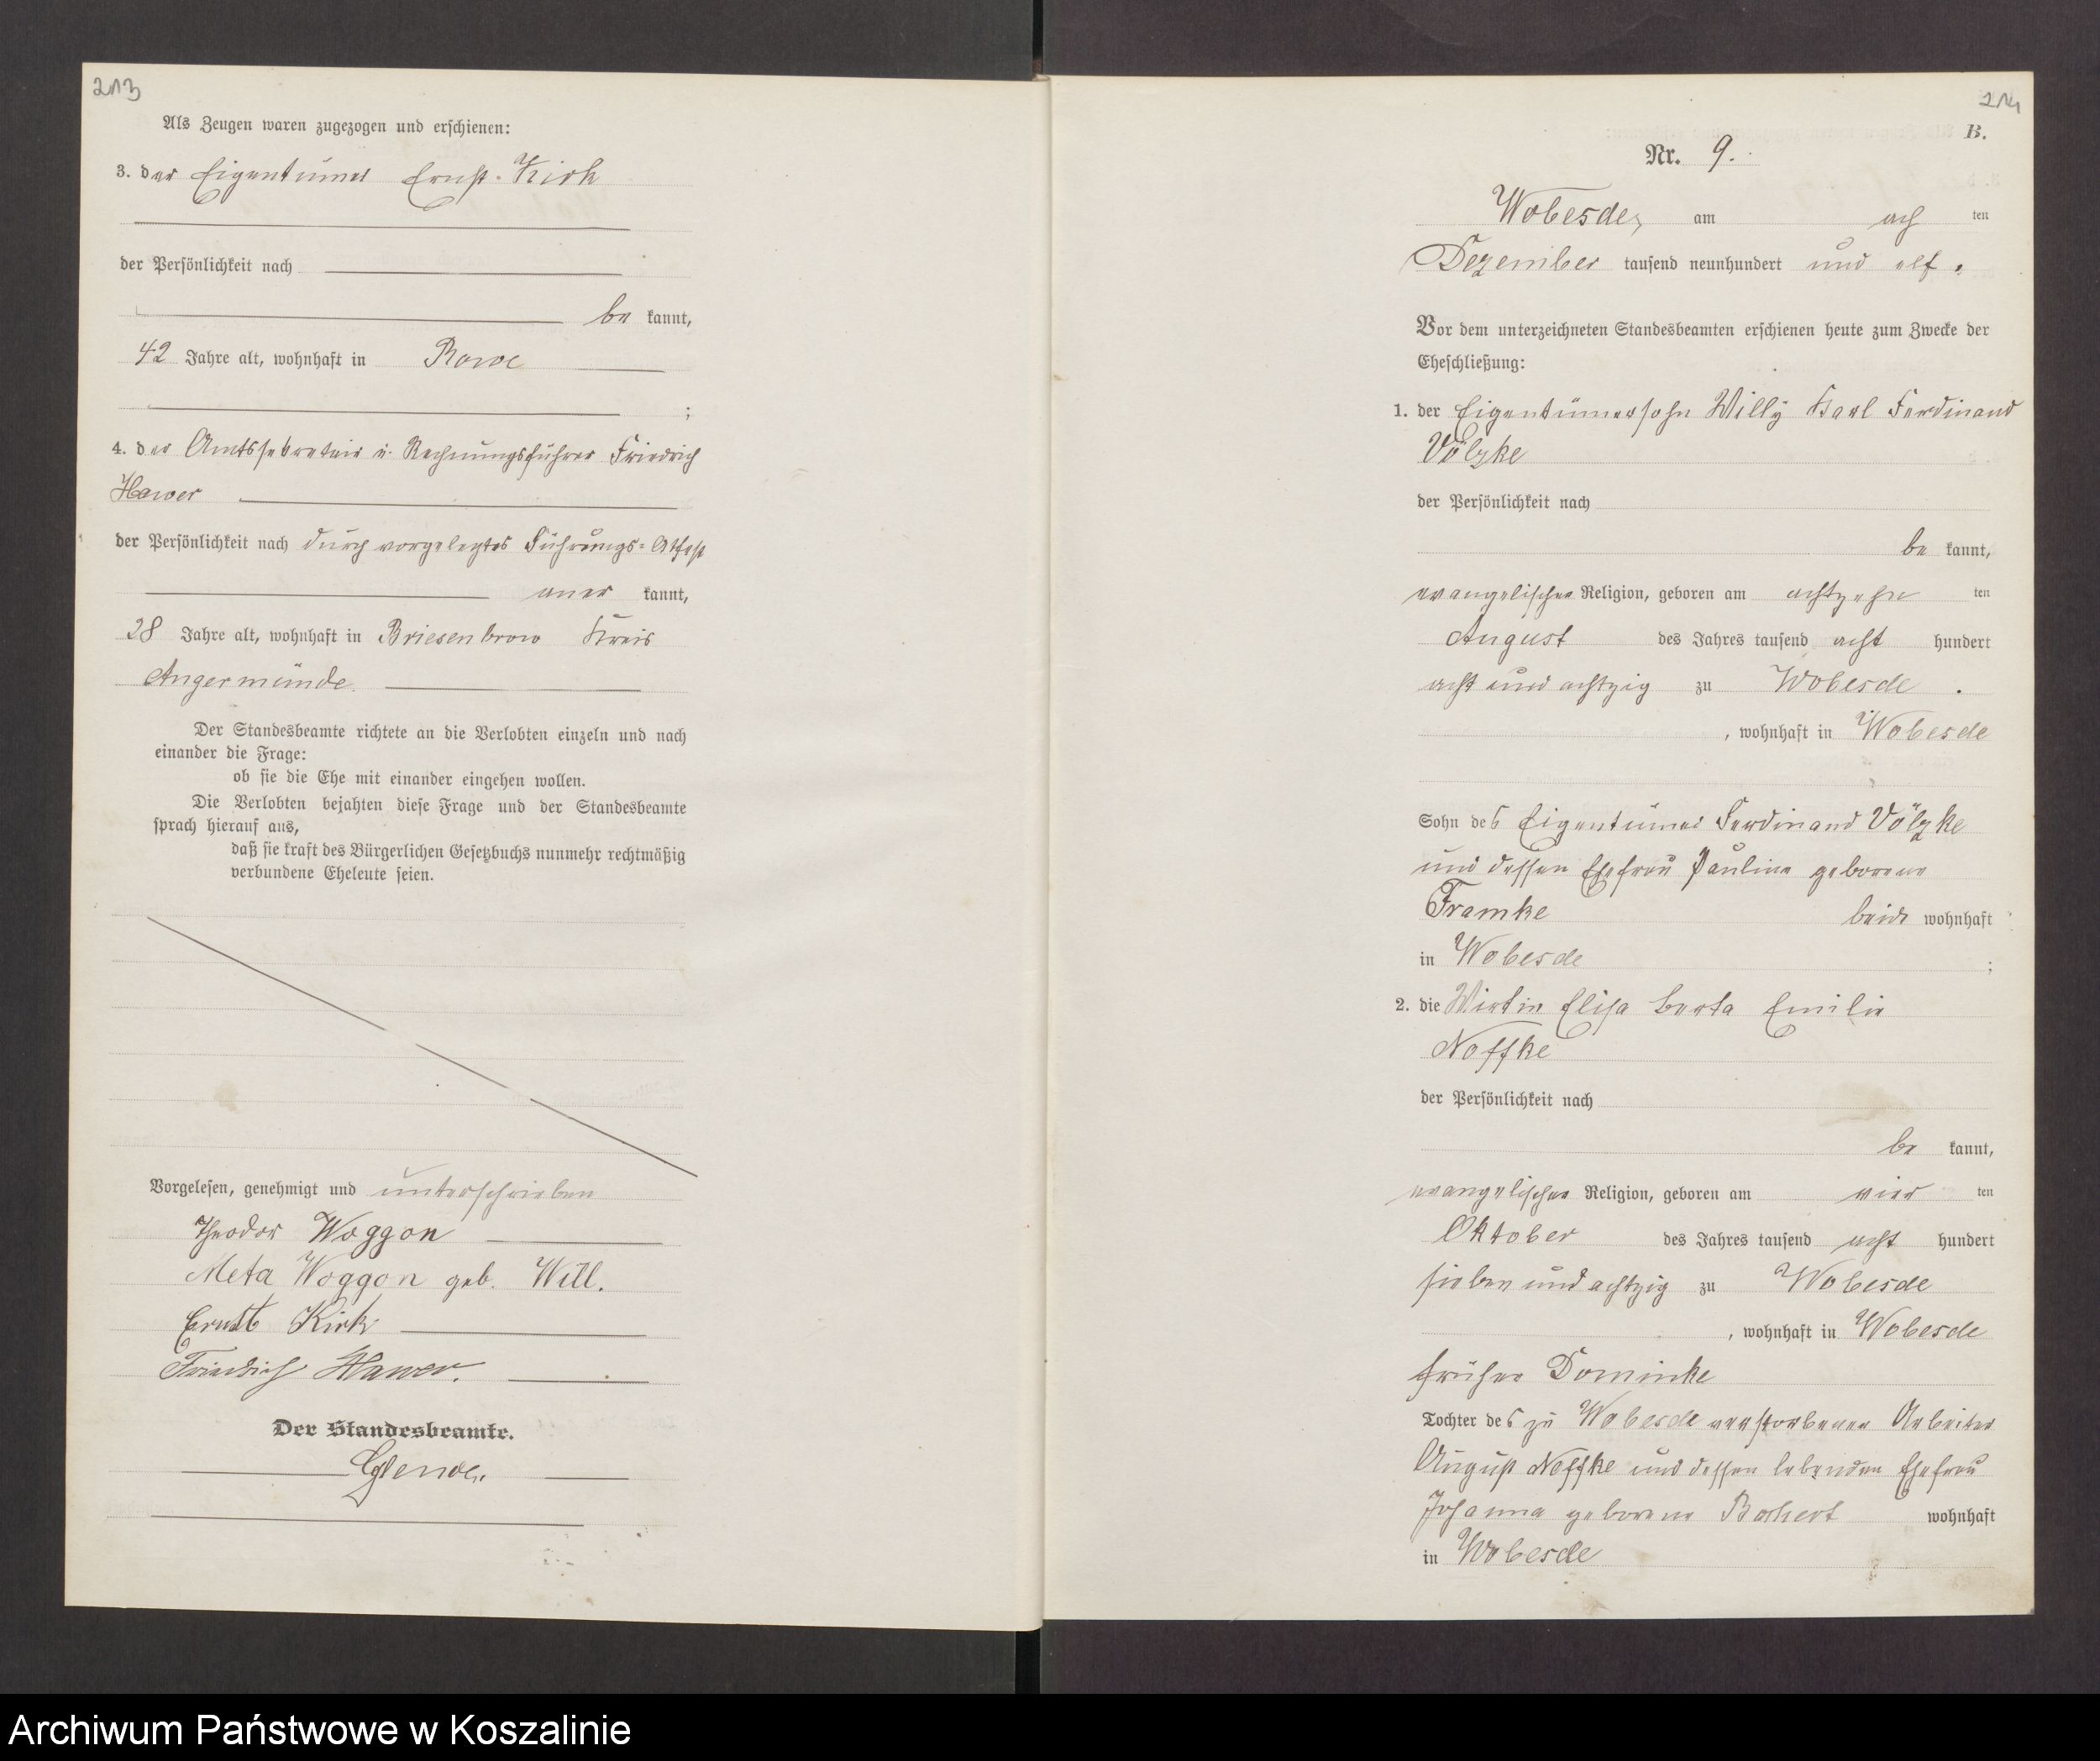 213
Als Zeugen waren zugezogen und erschienen:
3. der Eigentümer Ernst Kirk
der Persönlichkeit nach
be kannt,
42 Jahre alt, wohnhaft in Rowe
;
4. der Amtssekretair u. Rechnungsführer Friedrich
Hawer
der Persönlichkeit nach durch vorgelegtes Führungs-Attest
aner kannt,
28 Jahre alt, wohnhaft in Briesenbrow Kreis
Angermünde.
Der Standesbeamte richtete an die Verlobten einzeln und nach
einander die Frage:
ob sie die Ehe mit einander eingehen wollen.
Die Verlobten bejahten diese Frage und der Standesbeamte
sprach hierauf aus,
daß sie kraft des Bürgerlichen Gesetzbuchs nunmehr rechtmäßig
verbundene Eheleute seien.
Vorgelesen, genehmigt und unterschrieben
Theodor Woggon
Meta Woggon geb. Will.
Ernst Kirk
Friedrich Hawer.
Der Standesbeamte.
214
B.
Nr. 9.
Wobesde, am ach ten
Dezember tausend neunhundert und elf.
Vor dem unterzeichneten Standesbeamten erschienen heute zum Zwecke der
Eheschließung:
1. der Eigentümersohn Willy Karl Ferdinand
Völzke
der Persönlichkeit nach
be kannt,
evangelischer Religion, geboren am achtzehn ten
August des Jahres tausend acht hundert
acht und achtzig zu Wobesde.
, wohnhaft in Wobesde
Sohn des Eigentümer Ferdinand Völzke
und dessen Ehefrau Pauline geborene
Framke beide wohnhaft
in Wobesde
;
2. die Wirtin Elisa Berta Emilie
Noffke
der Persönlichkeit nach
be kannt,
evangelischer Religion, geboren am vier ten
Oktober des Jahres tausend acht hundert
sieben und achtzig zu Wobesde
, wohnhaft in Wobesde
früher Dominke
Tochter des zu Wobesde verstorbenen Arbeiter
August Noffke und dessen lebenden Ehefrau
Johanna geborene wohnhaft
in Wobesde
Archiwum Państwowe w Koszalinie